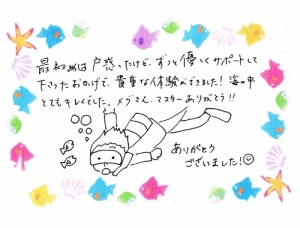 最初は戸惑ったけど、ずっと優しくサポートして
下さったおかげで、貴重な体験ができました!海の中
とてもキレイでした。メグさん、マスターありがとう!!
ありがとう
ございました!